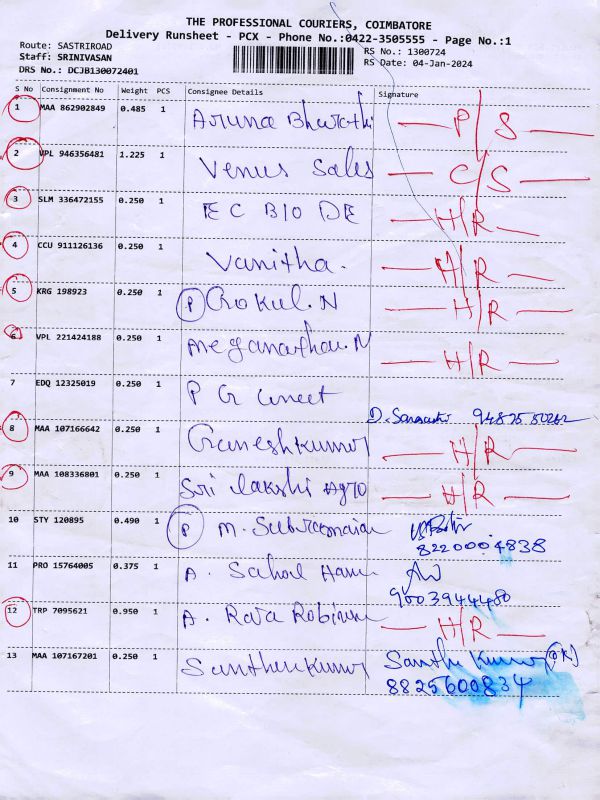 THE PROFESSIONAL COURIERS, COIMBATORE
Delivery Runsheet - PCX - Phone No.:0422-3505555 - Page No.:1
Route: SASTRIROAD RS No.: 1300724
Staff: SRINIVASAN RS Date: 04-Jan-2024
DRS No.: DCJB130072401
S No Consignment No Weight PCS Consignee Details Signature
1 MAA 862902849 0.485 1 Aruna Bharathi P/S
2 VPL 946356481 1.225 1 Venus Sales C/S
3 SLM 336472155 0.250 1 E C BIO DE H/R
4 CCU 911126136 0.250 1 Vanitha. H/R
5 KRG 198923 0.250 1 P Gokul.N H/R
6 VPL 221424188 0.250 1 Meganathan.N H/R
7 EDQ 12325019 0.250 1 P G
8 MAA 107166642 0.250 1 Ganeshkumar H/R
9 MAA 108336801 0.250 1 Sri lakshi Agro H/R
10 STY 120895 0.490 1 P M. Subramanian
8220004838
11 PRO 15764005 0.375 1 A.
9003944480
12 TRP 7095621 0.950 1 A. Raja H/R
13 MAA 107167201 0.250 1 Santhkumar Santhkumar
8825600834